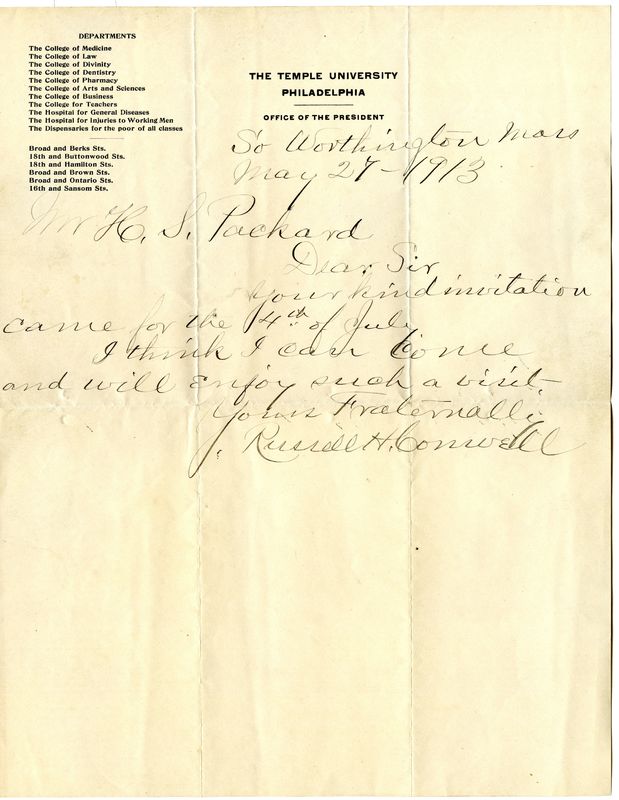 DEPARTMENTS
The College of Medicine
The College of Law
The College of Divinity
The College of Dentistry
The College of Pharmacy
The College of Arts and Sciences
The College of Business
The College for Teachers
The Hospital for General Diseases
The Hospital for Injuries to Working Men
The Dispensaries for the poor of all classes
Broad and Berks Sts.
18th and Buttonwood Sts.
18th and Hamilton Sts.
Broad and Brown Sts.
Broad and Ontario Sts.
16th and Sansom Sts.
THE TEMPLE UNIVERSITY
PHILADELPHIA
OFFICE OF THE PRESIDENT
So Worthington Mass
May 27-1913.
Mr H. S. Packard
Dear Sir
Your kind invitation
came for the 4th of July
I think I can come
and will enjoy such a visit-
Yours Fraternally
Russell H. Conwell